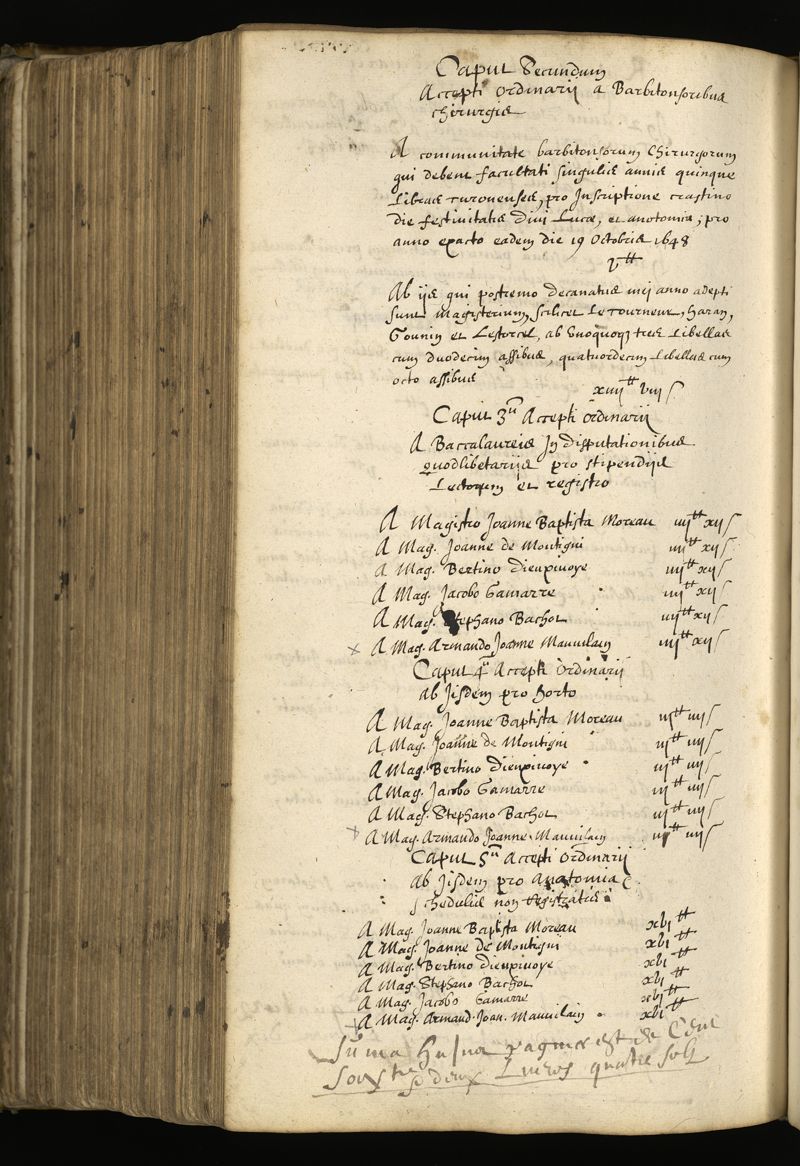 Caput Secundum
Accepti ordinarij a Barbitonsoribus
chirurgis
A communitate barbitonsorum chirurgorum
qui debent facultati singulis annis quinque
libras turonenses, pro Inscriptione crastino
die festivitatis divi Lucæ, et anatomia, pro
anno exacto eadem die 19 Octobris 1648
v ₶
Ab ijs qui postremo decanatus mei anno adepti
sunt magisterium, scilicet Le Tourneur, haran,
Gounin et Lestorcel, ab unoquoq; tres libellas
cum duodecim assibus, quatuordecim libellas cum
octo assibus
xiiij ₶ viij ſ
Caput 3um Accepti ordinarij
A Baccalaureis In disputationibus
quodlibetarijs pro stipendijs
Lectorum et registro
A Magistro Joanne Baptista Moreau iiij ₶ xij ſ
A Mag. Joanne de Montigni iiij ₶ xij ſ
A Mag. Bertino Dieuxivoye iiij ₶ xij ſ
A Mag. Jacobo Gamarre iiij ₶ xij ſ
A Mag. Stephano Bachot iiij ₶ xij ſ
A Mag. Armando Joanne Mauvilain iiij ₶ xij ſ
Caput 4um Accepti Ordinarij
ab Jisdem pro horto
A Mag. Joanne Baptista Moreau iij ₶ iiij ſ
A Mag. Joanne de Montigni iij ₶ iiij ſ
A Mag. Bertino Dieuxivoye iij ₶ iiij ſ
A Mag. Jacobo Gamarre iij ₶ iiij ſ
A Mag. Stephano Bachot iij ₶ iiij ſ
A Mag. Armando Joanne Mauvilain iij ₶ iiij ſ
Caput 5um Accepti Ordinarij
ab Jisdem pro Anatomia
schedulis non registratis
A Mag. Joanne Baptista Moreau xvj ₶
A Mag. Joanne de Montigni xvj ₶
A Mag. Bertino Dieuxivoye xvj ₶
A Mag. Stephano Bachot xvj ₶
A Mag. Jacobo Gamarre xvj ₶
A Mag. Armand. Joan. Mauvilain xvj ₶
Suma huius paginæ est de Cent
deux Livres quatre solz